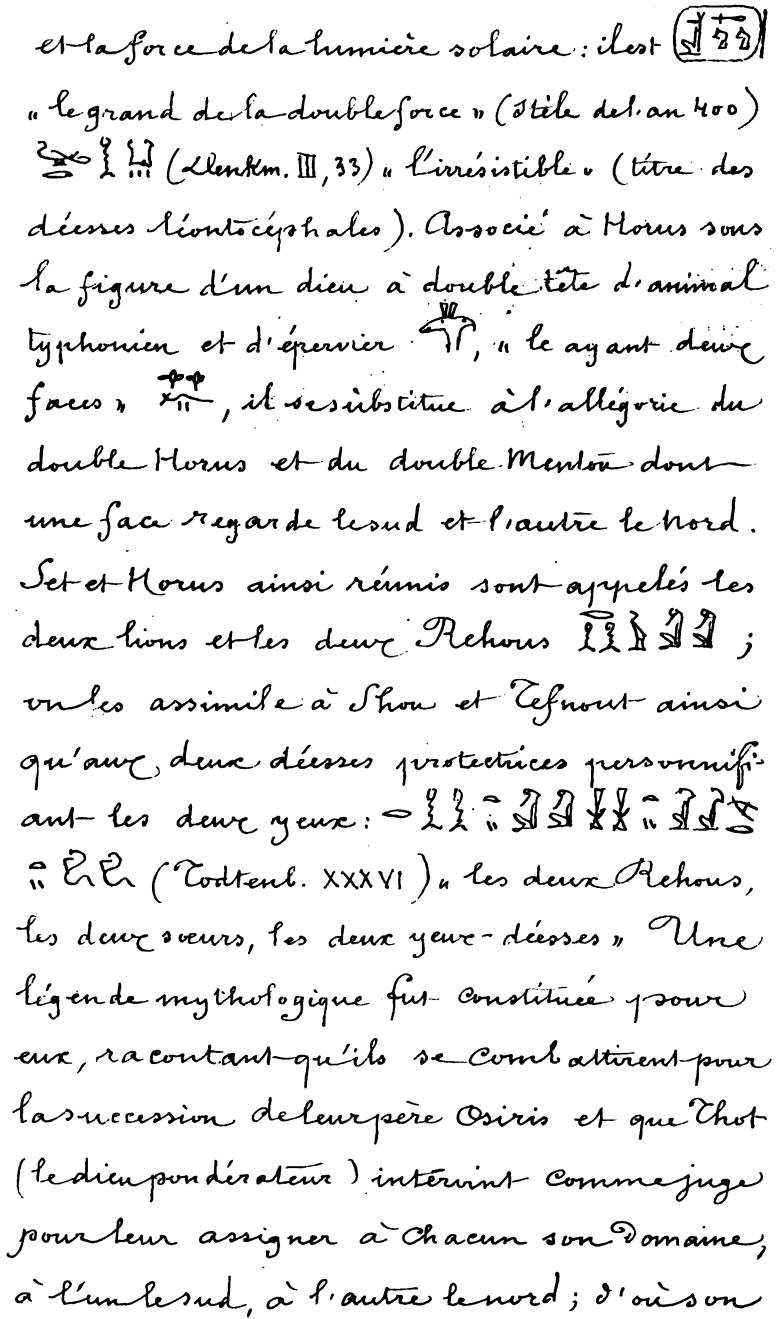 et la force de la lumière solaire : il est
« le grand de la double force » (Stèle de l'an 400)
(Denkm. III, 33) « l'irrésistible » (titre des
déesses léontocéphales). Associé à Horus sous
la figure d'un dieu à double tête d'animal
typhonien et d'épervier , « le ayant deux
faces » , il se substitue à l'allégorie du
double Horus et du double Mentou dont
une face regarde le sud et l'autre le nord.
Set et Horus ainsi réunis sont appelés les
deux lions et les deux Rehous ;
on les assimile à Shou et Tefnout ainsi
qu'aux deux déesses protectrices personnifi-
ant les deux yeux :
(Todtenb. XXXVI) « les deux Rehous,
les deux soeurs, les deux yeux-déesses » Une
légende mythologique fut constituée pour
eux, racontant qu'ils se combattirent pour
la succession de leur père Osiris et que Thot
(le dieu pondérateur) intervint comme juge
pour leur assigner à chacun son Domaine,
à l'un le sud, à l'autre le nord ; d'où son